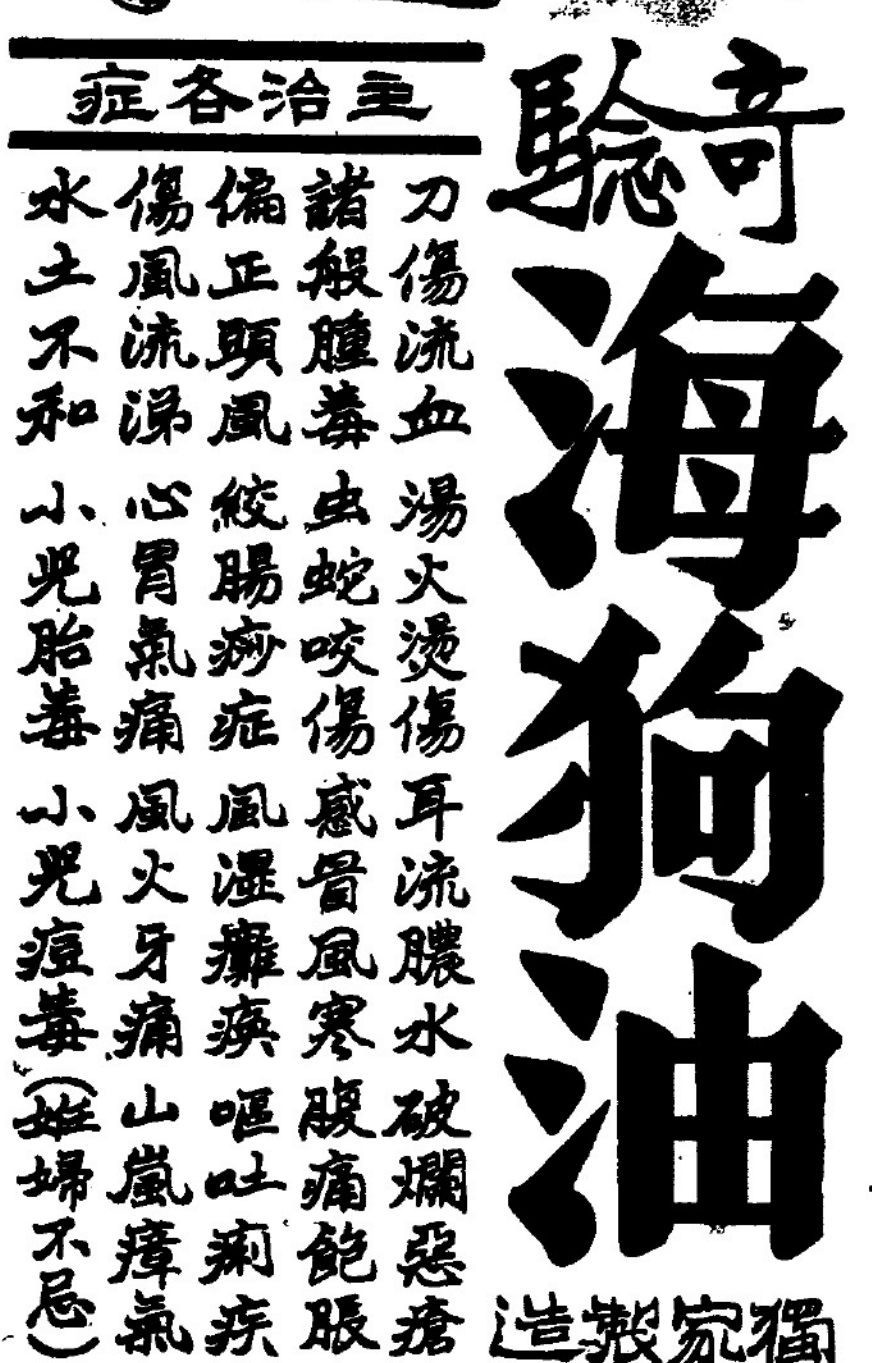 奇騐
海狗油
獨家製造
主治各症
刀傷流血 湯火燙傷 耳流膿水 破爛惡瘡
諸般腫毒 虫蛇咬傷 感冒風寒 腹痛飽脹
偏正頭風 絞腸痧症 風濕癱瘓 嘔吐痢疾
傷風流涕 心胃氣痛 風火牙痛 山嵐瘴氣
水土不和 小兒胎毒 小兒痘毒 (姙婦不忌)